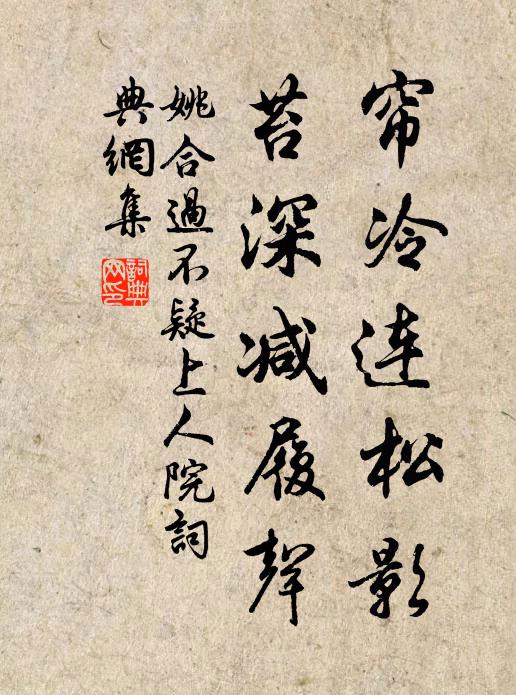 帘冷连松影
苔深减履聲
姚合過不疑上人院詞
典網集
詞典网印